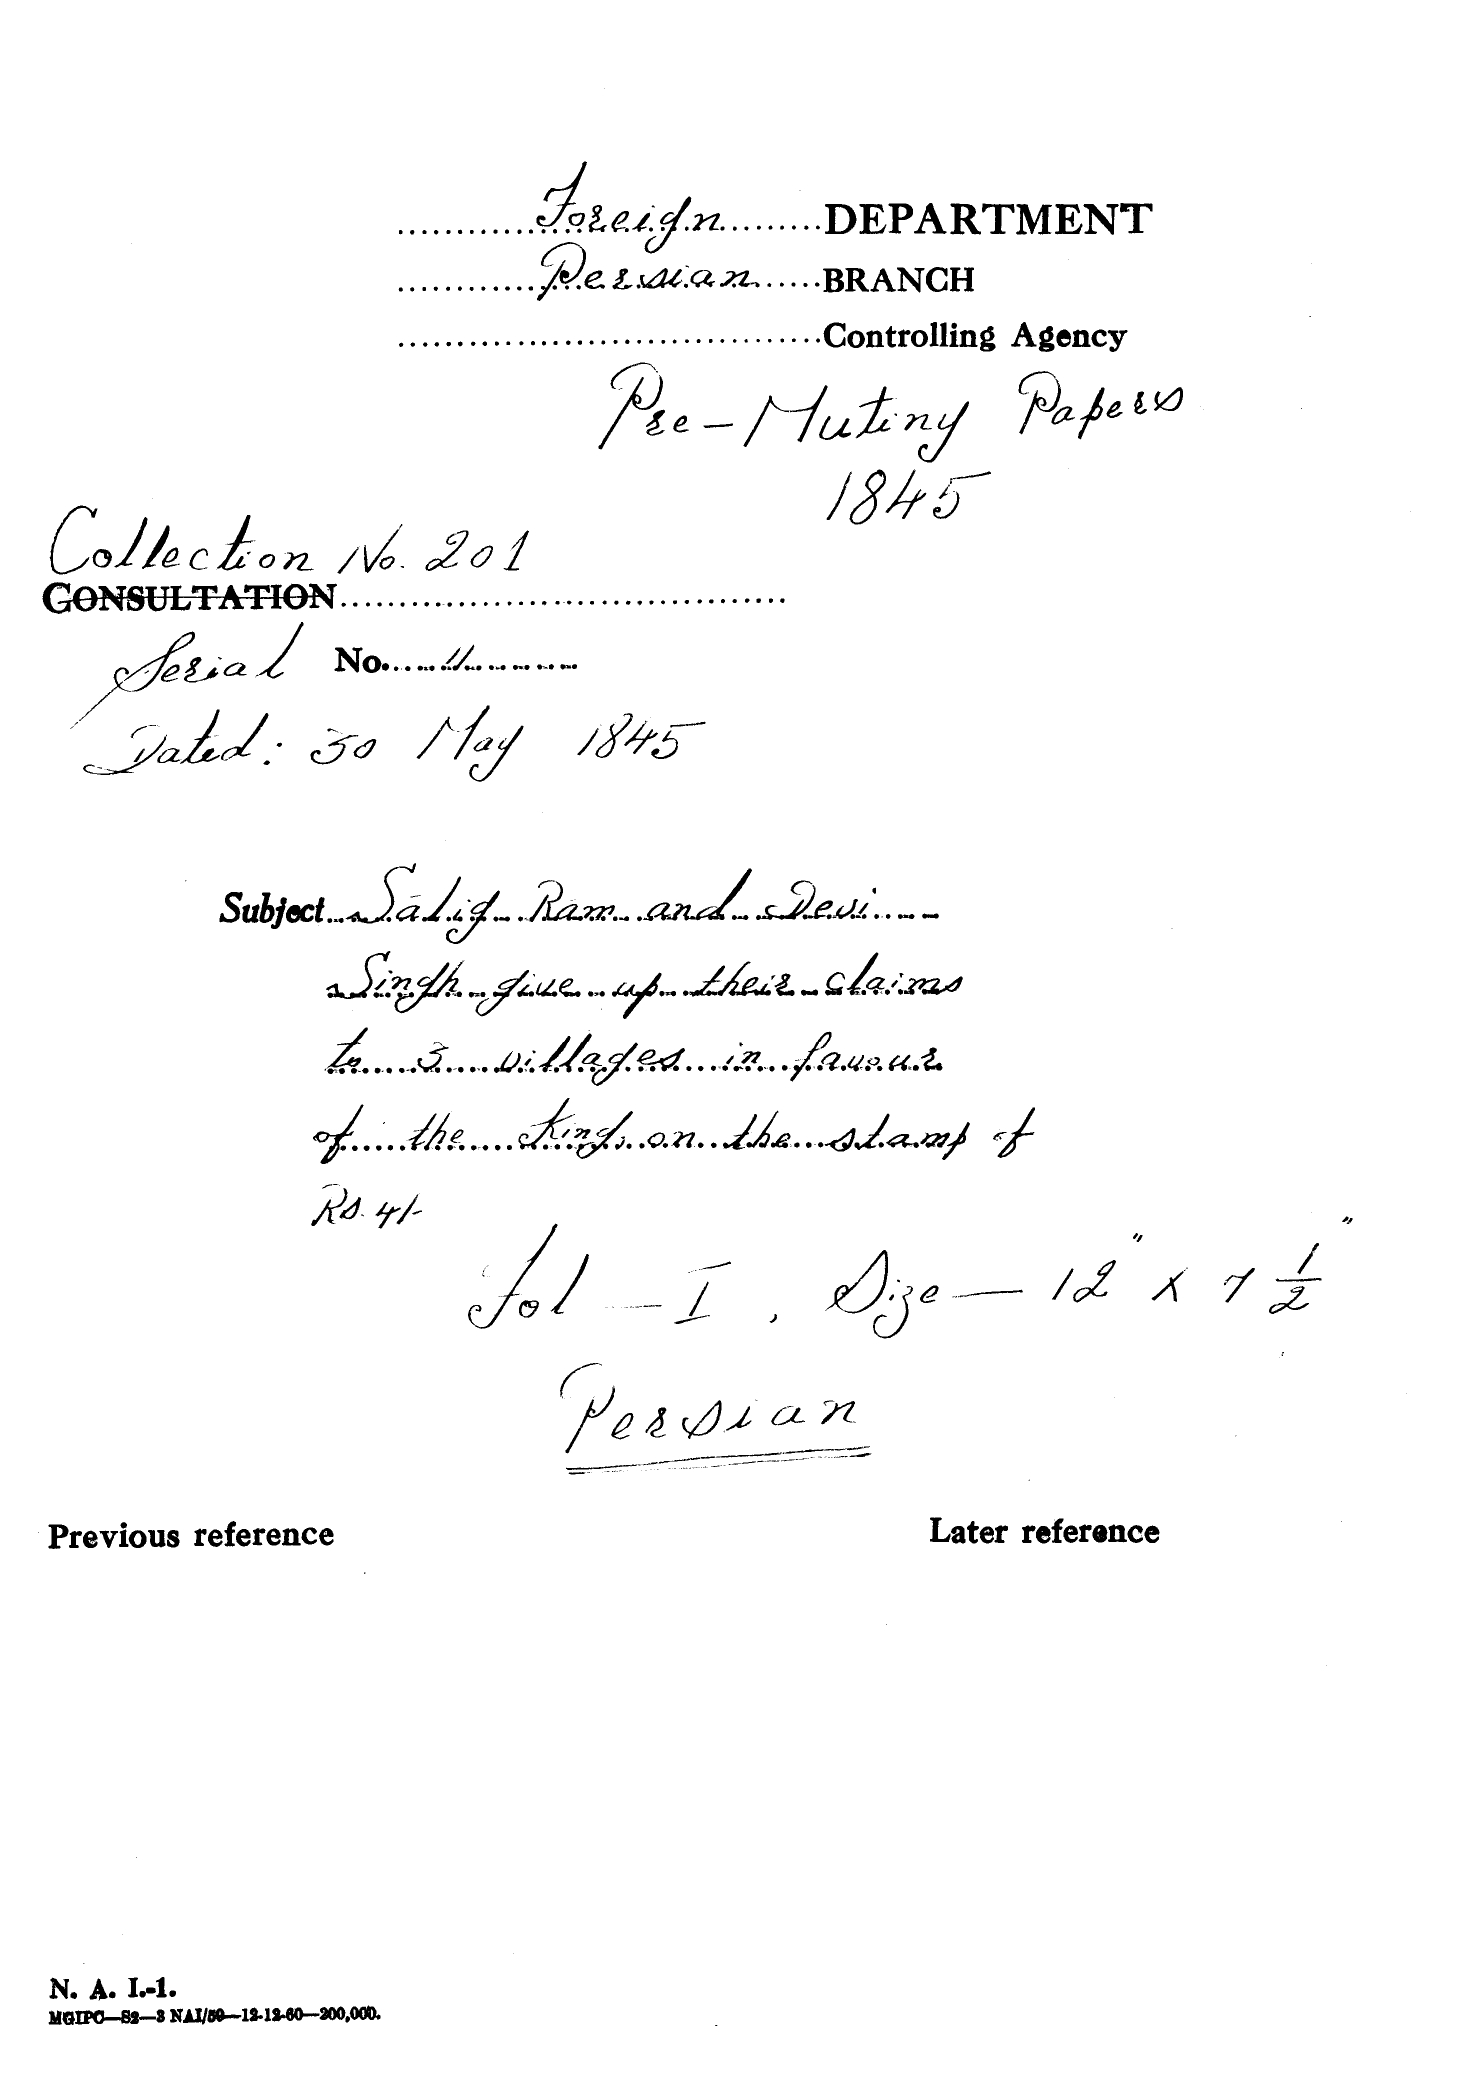 Foreign DEPARTMENT
Persian BRANCH
Controlling Agency
Pre-Mutiny Papers
1845
Collection No. 201
CONSULTATION
Serial No. 11
Dated: 30 May 1845
Subject Salig Ram and Devi
Singh give up their claims
to 3 villages in favour
of the King, on the stamp of
Rs. 4/-
Fol - I, Size - 12" x 7 1/2"
Persian
Previous reference Later reference
N. A. I.-1.
MGIPC—S2—3 NAI/59—12-12-60—200,000.